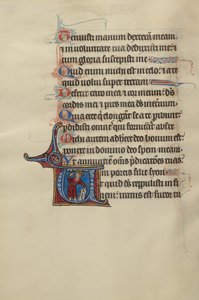 Tenuisti manum dexterā meam
in voluntate tua deduxisti me
cum gloria suscepisti me
Quid enim michi est in celo: & a te
quid volui super terram
Defecit caro mea & cor meum: de
cordis mei & pars mea ds in eternū
Quia ecce qui elongant se a te peribunt:
pdidisti omnes qui fornicant᷑ abs te
Michi autem adherere deo bonum est:
ponere in domino deo spem meam
Ut annuntiem om̄s p̄dicatōnes tuas
in portis filie syon
Ut quid ds repulisti in fi
nem: iratus est furor tu